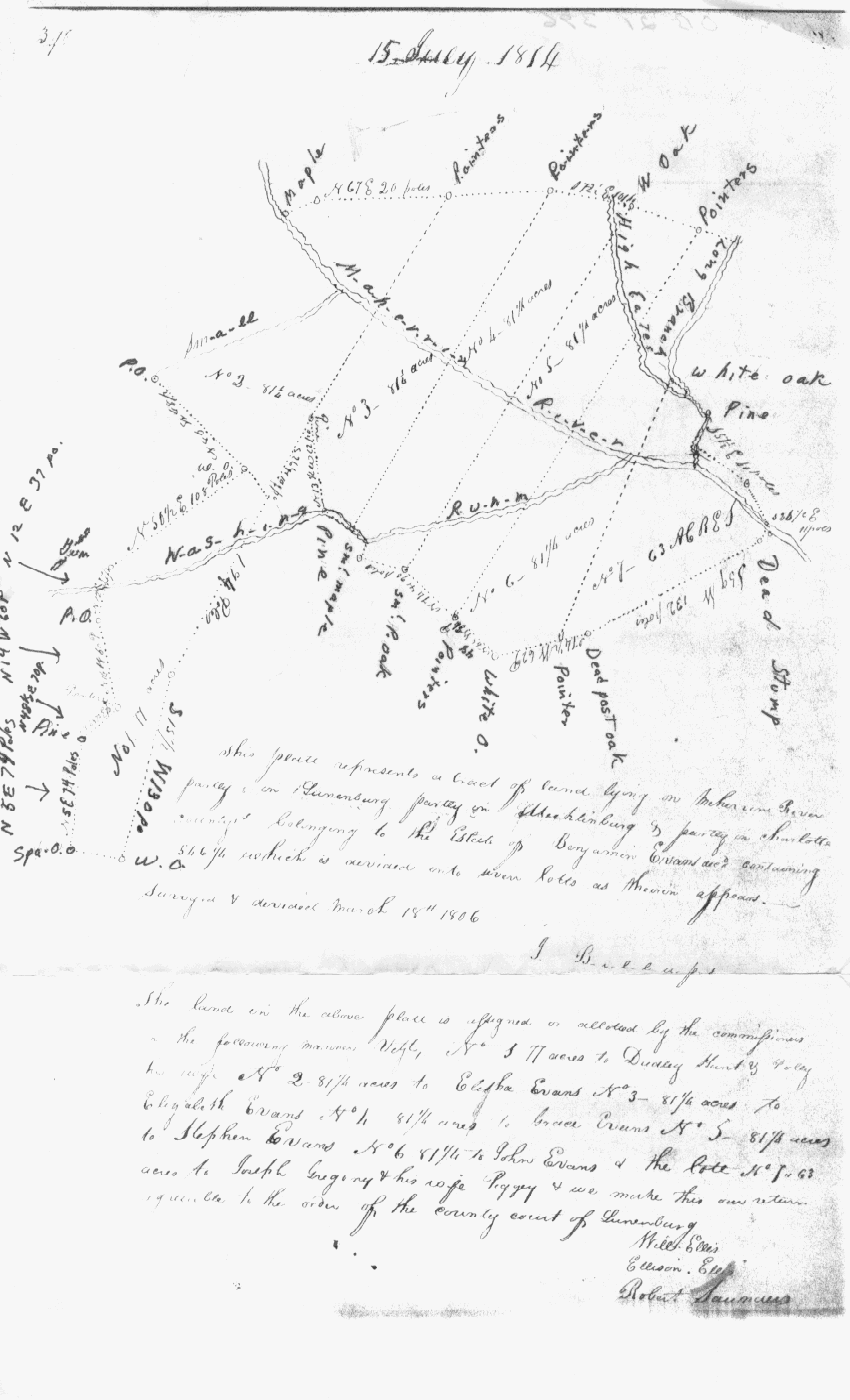 15 July 1814
Maple
N 67 E 20 poles
Pointers
Pointers
W Oak
Pointers
High Gates
Long Branch
M-a-h-e-r-r-i-n
R-i-v-e-r
Small
P.O.
No 2 - 81¼ acres
No 3 - 81¼ acres
No 4 - 81¼ acres
No 5 - 81¼ acres
white oak
Pine
Washing
Run
Pine
Sml maple
Sml P. oak
Pointers
White O.
Pointer
Dead post oak
Dead Stump
No 6 - 81¼ acres
No 7 - 63 ACRES
S 59 W 132 poles
N 50½ E 108 Poles
194 Poles
N 12 E 37 po.
P.O.
Pine
No 1 77 acres
N 5 E 74 Poles
5 E 74 Poles
W 130 po
Spa. O.
W. O
This plate represents a tract of land lying on Meherrin River
partly in Lunenburg partly in Mecklinburg & partly in Charlotte
countys belonging to the Estate of Benjamin Evans decd containing
546¼ which is devided into seven lotts as therein appears.
Surveyd & devided March 18th 1806
J Billups
The land in the above platt is assigned or allotted by the commissioners
in the following manner Vizt, No 1 77 acres to Dudley Hunt &
his wife No 2 81¼ acres to Elisha Evans No 3 - 81¼ acres to
Elizabeth Evans No 4 81¼ acres to Grace Evans No 5 - 81¼ acres
to Stephen Evans No 6 81¼ to John Evans & the lott No 7 - 63
acres to Joseph Gregory & his wife Peggy & we make this our return
agreeable to the order of the county court of Lunenburg
Will. Ellis
Ellison. Ellis
Robert Saunders